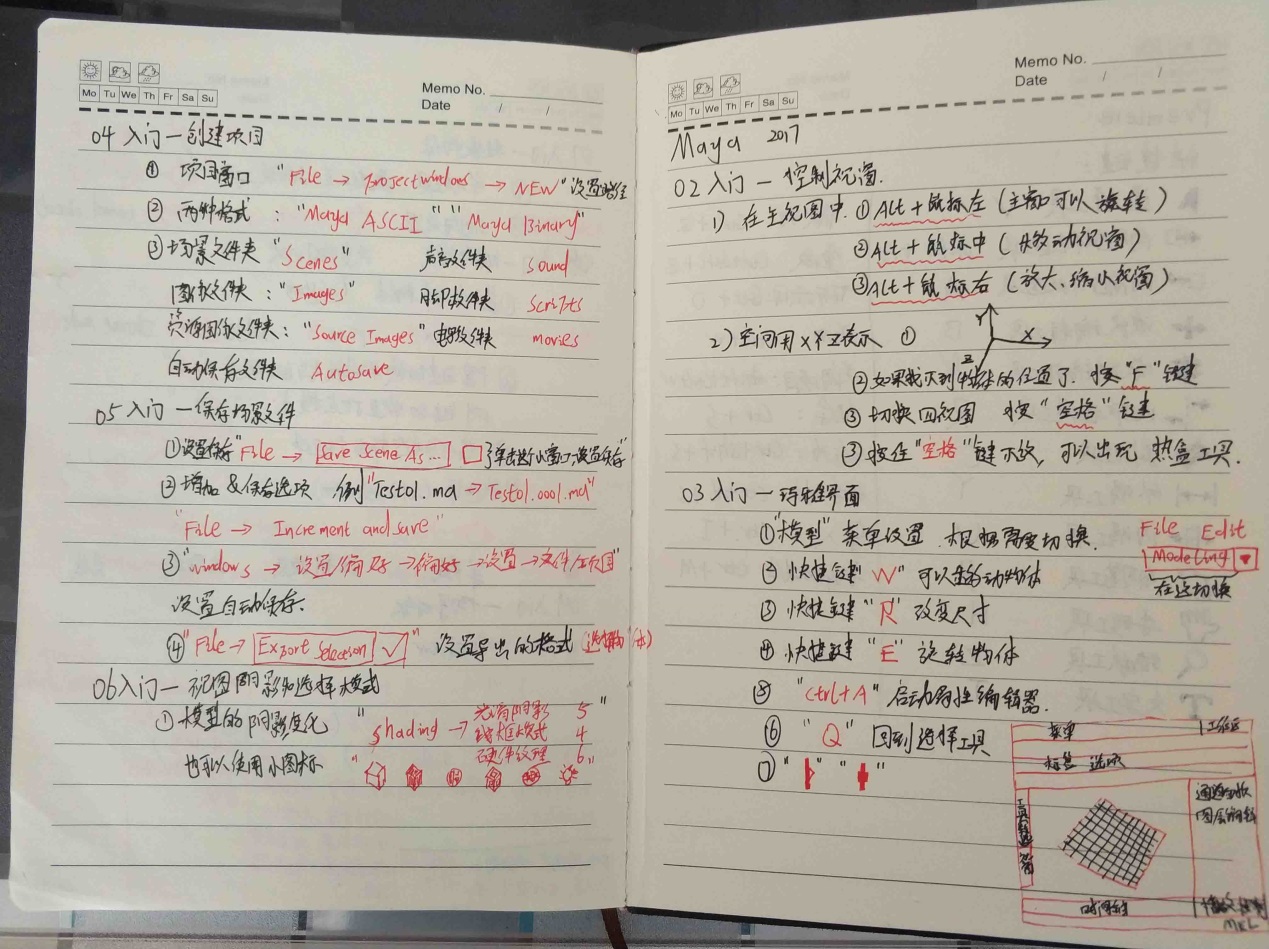 Memo No.
Mo Tu We Th Fr Sa Su
Date / /
04 入门一创建项目
① 项目窗口 "File → projectwindows → NEW" 设置路径
② 两种格式 : "Maya ASCII" "Maya Binary"
③ 场景文件夹 "Scenes" 声音文件夹 sound
图像文件夹 : "Images" 脚本文件夹 Scripts
资源图像文件夹: "Source Images" 电影文件夹 movies
自动保存文件夹 Autosave
05 入门 一保存场景文件
①设置保存 "File → Save Scene As... □ 单击这个小窗口,设置保存"
② 增加 & 保存选项 例 "Test01.ma → Test01.0001.ma"
"File → Increment and save"
③ "windows → 设置/偏好 → 偏好 → 设置 → 文件/项目"
设置自动保存.
④ "File → Export Selection ✓" 设置导出的格式 (选择物体)
06入门一 视图阴影和选择模式
① 模型的阴影变化 "shading → 光滑阴影 5"
线框模式 4
硬件纹理 6"
也可以使用小图标 "
Memo No.
Mo Tu We Th Fr Sa Su
Date / /
Maya 2017
02 入门 一 控制视窗.
1) 在主视图中. ① Alt + 鼠标左 (主窗口可以旋转)
② Alt + 鼠标中 (移动视窗)
③ Alt + 鼠标右 (放大、缩小视窗)
2) 空间用 XYZ表示 ①
Y
X
Z
② 如果找不到物体的位置了. 按 "F" 键
③ 切换四视图 按 "空格" 键
③ 按住 "空格" 键不放, 可以出现 热盒工具.
03 入门 一 界面
① "模型" 菜单设置. 根据需要切换.
File Edit
Modeling ▼
在这切换
② 快捷键 "W" 可以移动物体
③ 快捷键 "R" 改变尺寸
④ 快捷键 "E" 旋转物体
⑤ "ctrl+A" 启动属性编辑器.
⑥ "Q" 回到选择工具
⑦ " " " "
菜单
工作区
标签 选项
工具
通道
图层编辑
时间轴
MEL